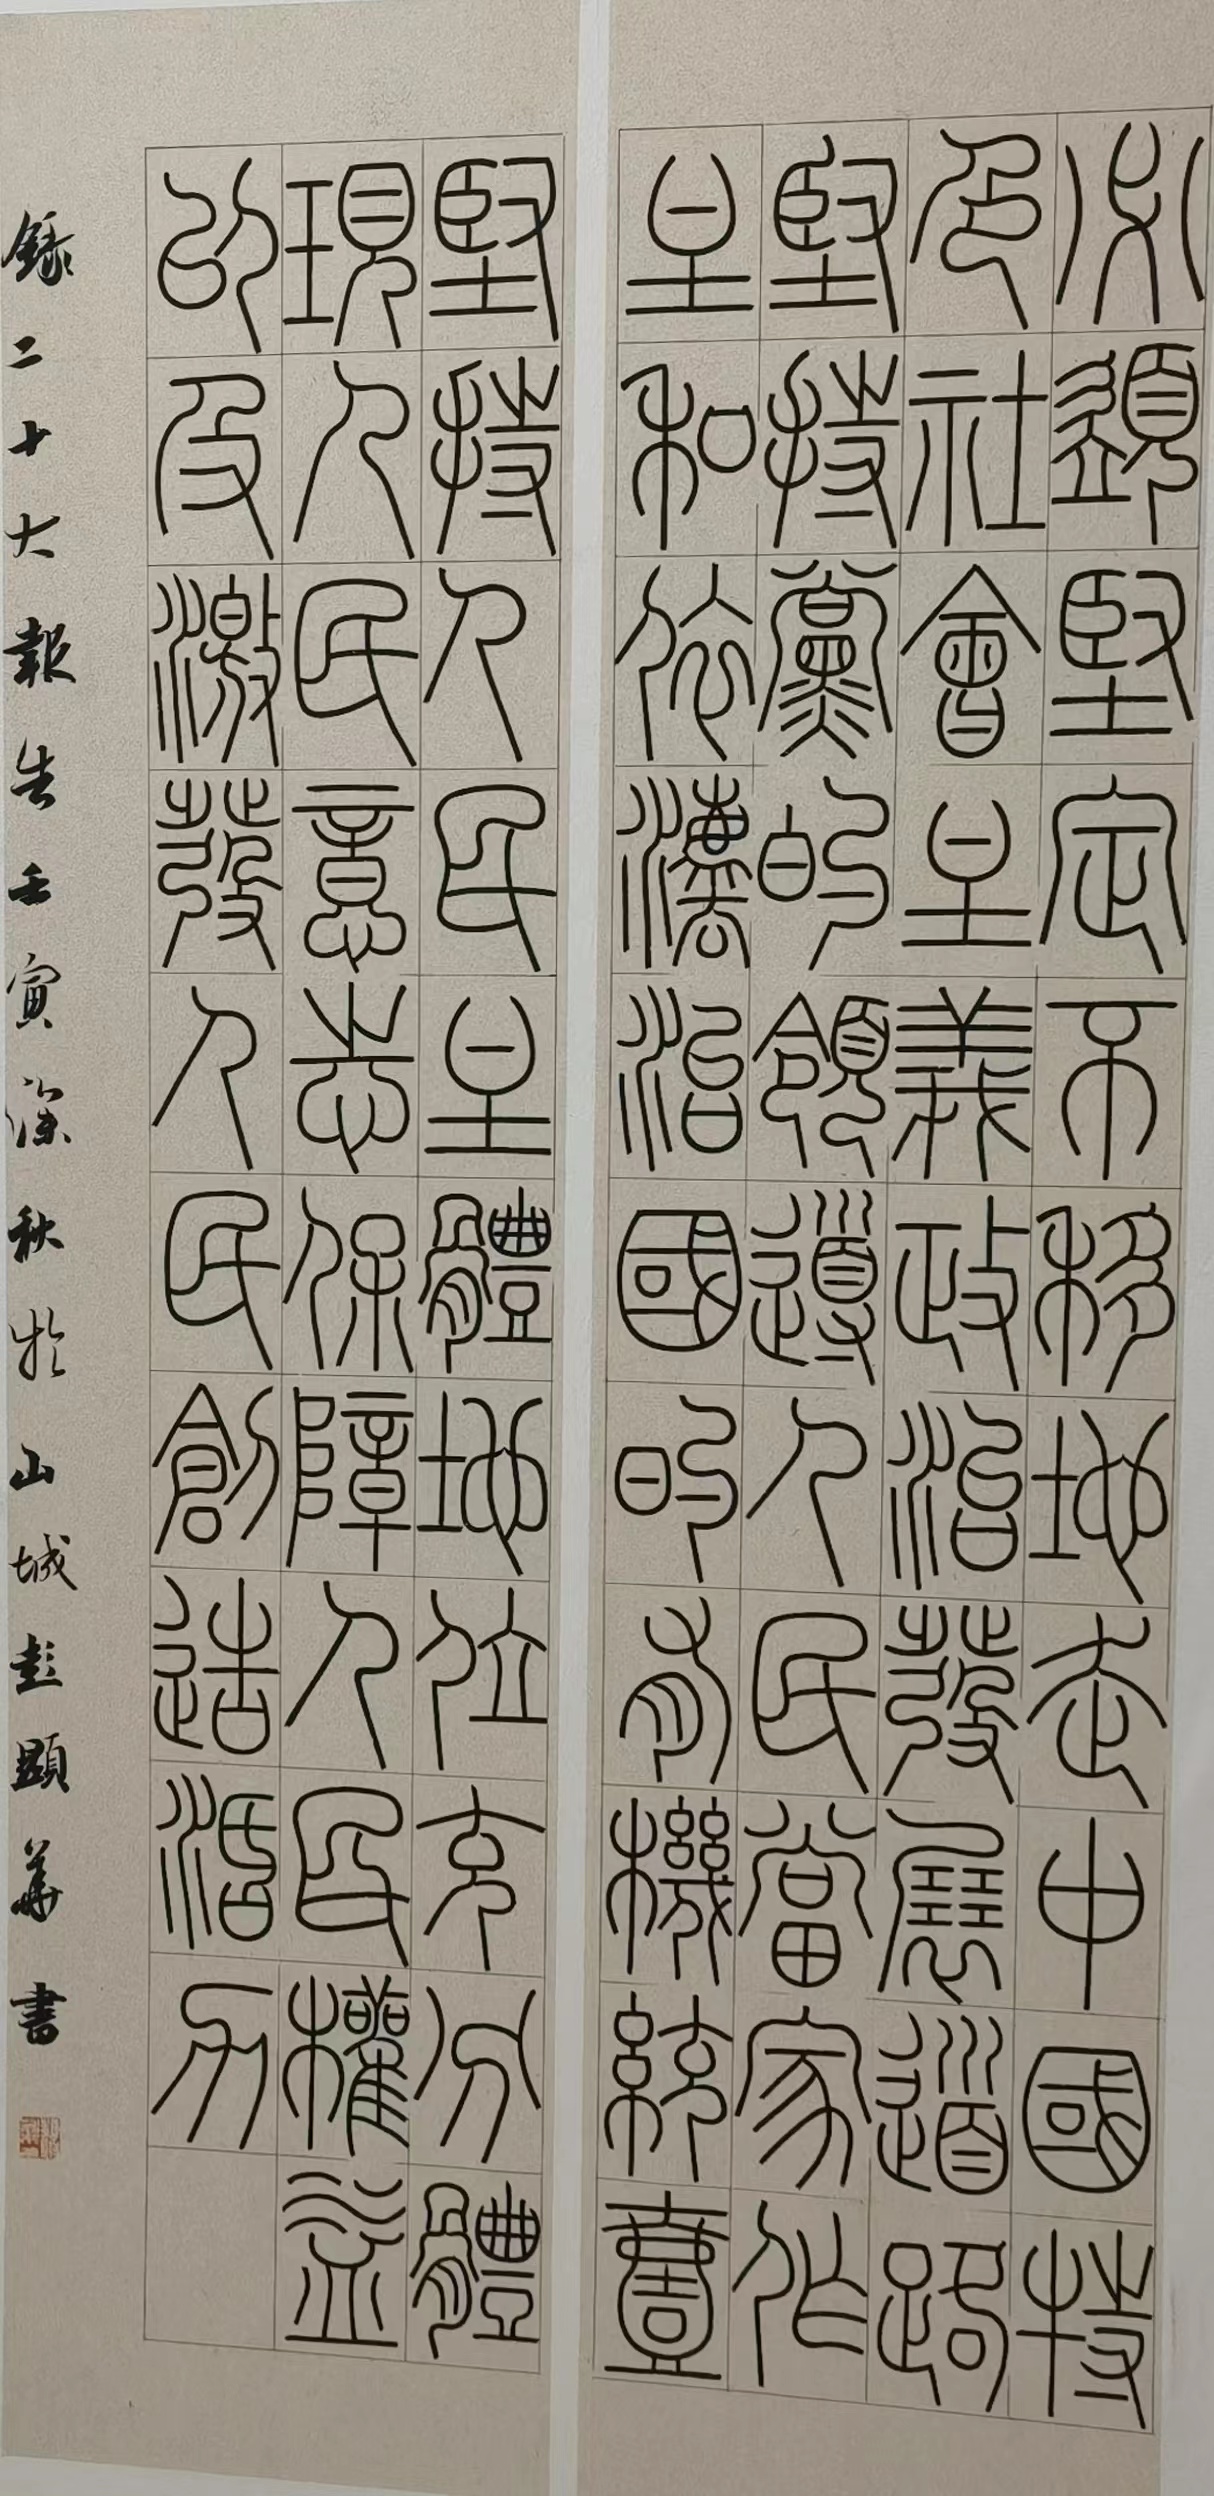 必須堅定不移地走中國特
色社會主義政治發展道路
堅持黨的領導人民當家作
主和依灋治國的有機統壹
堅持人民主體地位充分體
現人民意志保障人民權益
以及激發人民創造活力
錄二十大報告壬寅深秋於山城彭顯華書